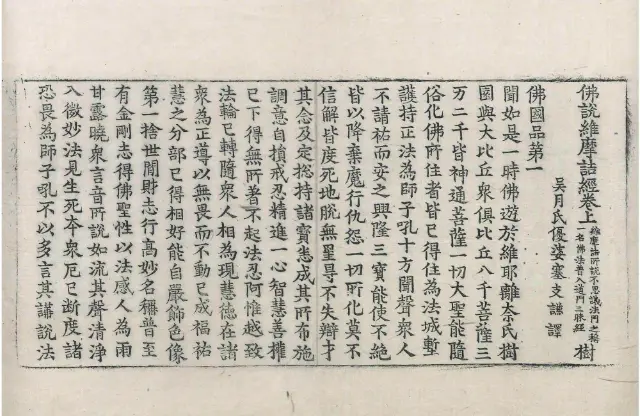 佛說維摩詰經卷上 維摩詰所說不思議法門之稱 一名佛法普入道門三昧經 樹
吳月氏優婆塞支謙譯
佛國品第一
聞如是一時佛遊於維耶離奈氏樹
園與大比丘衆俱比丘八千菩薩三
万二千皆神通菩薩一切大聖能隨
俗化佛所住者皆已得住為法城塹
護持正法為師子吼十方聞聲衆人
不請祐而安之興隆三寶能使不絶
皆以降棄魔行仇怨一切所化莫不
信解皆度死地脫無罣㝵不失辯才
其念及定惣持諸寶悉成其所布施
調意自損戒忍精進一心智慧善權
已下得無所著不起法忍阿惟越致
法輪已轉隨衆人相為現慧德在諸
衆為正導以無畏而不動已成福祐
慧之分部已得相好能自嚴飾色像
第一捨世間財志行高妙名稱普至
有金剛志得佛聖性以法感人為雨
甘露曉衆言音所說如流其聲清淨
入微妙法見生死本衆厄已斷度諸
恐畏為師子吼不以多言其講說法